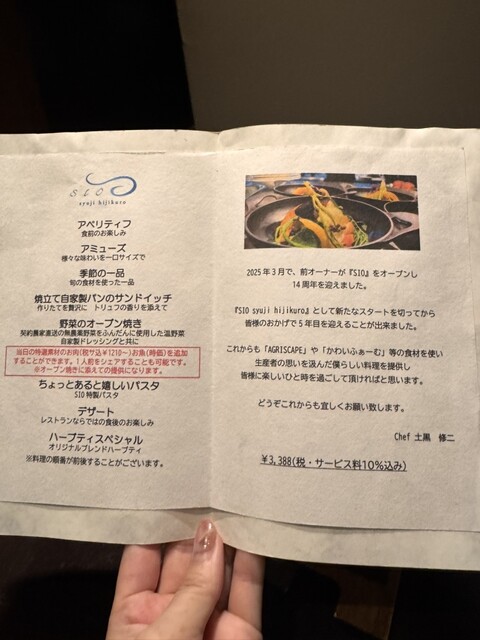 SIO
syuji hijikuro
アペリティフ
食前のお楽しみ
アミューズ
様々な味わいを一口サイズで
季節の一品
旬の食材を使った一品
焼立て自家製パンのサンドイッチ
作りたてを贅沢に トリュフの香りを添えて
野菜のオーブン焼き
契約農家直送の無農薬野菜をふんだんに使用した温野菜
自家製ドレッシングと共に
当日の特選素材のお肉(税サ込¥1210~)お魚(時価)を追加
することができます。1人前をシェアすることも可能です。
※オーブン焼きに添えての提供になります。
ちょっとあると嬉しいパスタ
SIO特製パスタ
デザート
レストランならではの食後のお楽しみ
ハーブティスペシャル
オリジナルブレンドハーブティ
※料理の順番が前後することがございます。
2025年3月で、前オーナーが『SIO』をオープンし
14周年を迎えました。
『SIO syuji hijikuro』として新たなスタートを切ってから
皆様のおかげで5年目を迎えることが出来ました。
これからも「AGRISCAPE」や「かわいふぁーむ」等の食材を使い
生産者の思いを汲んだ僕らしい料理を提供し
皆様に楽しいひと時を過ごして頂ければと思います。
どうぞこれからも宜しくお願い致します。
Chef 土黒 修二
¥3,388(税・サービス料10%込み)